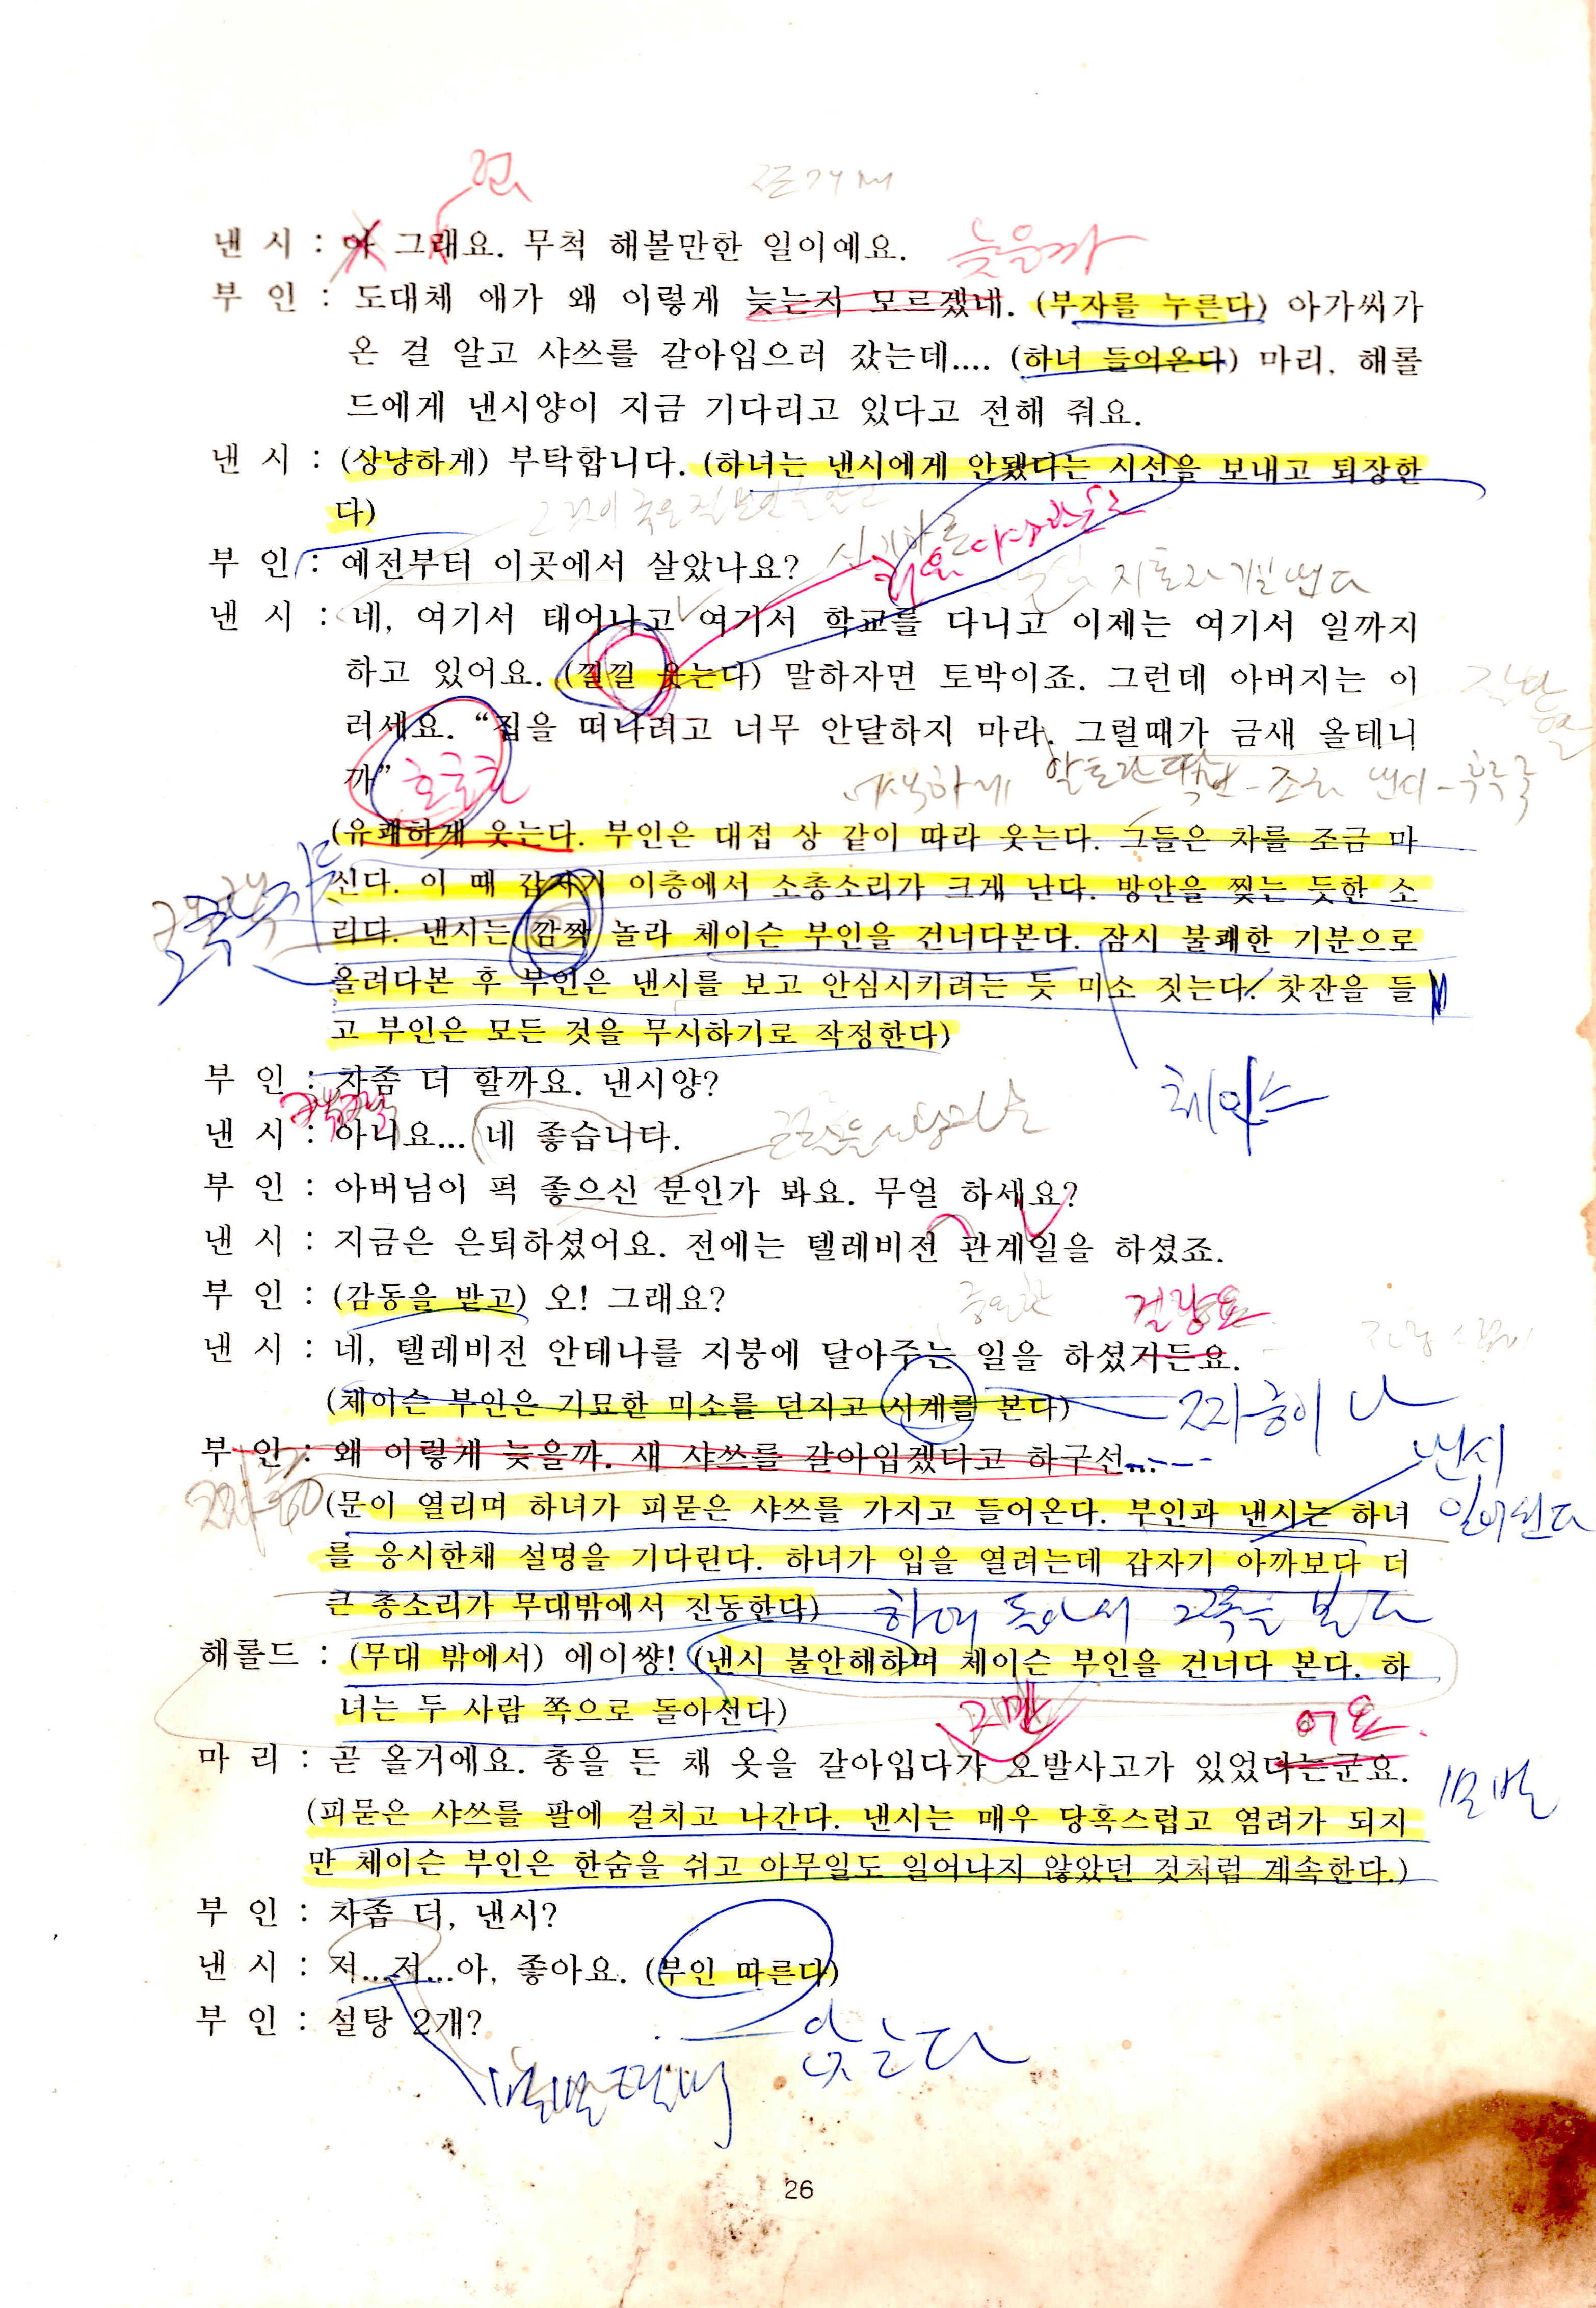 낸 시 : 아 그래요. 무척 해볼만한 일이예요.
늦을까
부 인 : 도대체 애가 왜 이렇게 늦는지 모르겠네. (부자를 누른다) 아가씨가
온 걸 알고 샤쓰를 갈아입으러 갔는데.... (하녀 들어온다) 마리. 해롤
드에게 낸시양이 지금 기다리고 있다고 전해 줘요.
낸 시 : (상냥하게) 부탁합니다. (하녀는 낸시에게 안됐다는 시선을 보내고 퇴장한
다)
부 인 : 예전부터 이곳에서 살았나요?
낸 시 : 네, 여기서 태어나고 여기서 학교를 다니고 이제는 여기서 일까지
하고 있어요. (낄낄 웃는다) 말하자면 토박이죠. 그런데 아버지는 이
러세요. “집을 떠나려고 너무 안달하지 마라. 그럴때가 금새 올테니
까”
(유쾌하게 웃는다. 부인은 대접 상 같이 따라 웃는다. 그들은 차를 조금 마
신다. 이 때 갑자기 이층에서 소총소리가 크게 난다. 방안을 찢는 듯한 소
리다. 낸시는 깜짝 놀라 체이슨 부인을 건너다본다. 잠시 불쾌한 기분으로
올려다본 후 부인은 낸시를 보고 안심시키려는 듯 미소 짓는다. 찻잔을 들
고 부인은 모든 것을 무시하기로 작정한다)
부 인 : 차좀 더 할까요. 낸시양?
체이스
낸 시 : 아니요... 네 좋습니다.
부 인 : 아버님이 퍽 좋으신 분인가 봐요. 무얼 하세요?
낸 시 : 지금은 은퇴하셨어요. 전에는 텔레비전 관계일을 하셨죠.
부 인 : (감동을 받고) 오! 그래요?
걸랑요
낸 시 : 네, 텔레비전 안테나를 지붕에 달아주는 일을 하셨거든요.
(체이슨 부인은 기묘한 미소를 던지고 시계를 본다)
짜증이 나
부 인 : 왜 이렇게 늦을까. 새 샤쓰를 갈아입겠다고 하구선....
낸시
일어선다
(문이 열리며 하녀가 피묻은 샤쓰를 가지고 들어온다. 부인과 낸시는 하녀
를 응시한채 설명을 기다린다. 하녀가 입을 열려는데 갑자기 아까보다 더
큰 총소리가 무대밖에서 진동한다)
하녀 돌아서 그쪽을 본다
해롤드 : (무대 밖에서) 에이썅! (낸시 불안해하며 체이슨 부인을 건너다 본다. 하
녀는 두 사람 쪽으로 돌아선다)
그만
어요.
마 리 : 곧 올거에요. 총을 든 채 옷을 갈아입다가 오발사고가 있었다는군요.
(피묻은 샤쓰를 팔에 걸치고 나간다. 낸시는 매우 당혹스럽고 염려가 되지
만 체이슨 부인은 한숨을 쉬고 아무일도 일어나지 않았던 것처럼 계속한다.)
부 인 : 차좀 더, 낸시?
낸 시 : 저...저...아, 좋아요. (부인 따른다)
부 인 : 설탕 2개?
앉는다
26